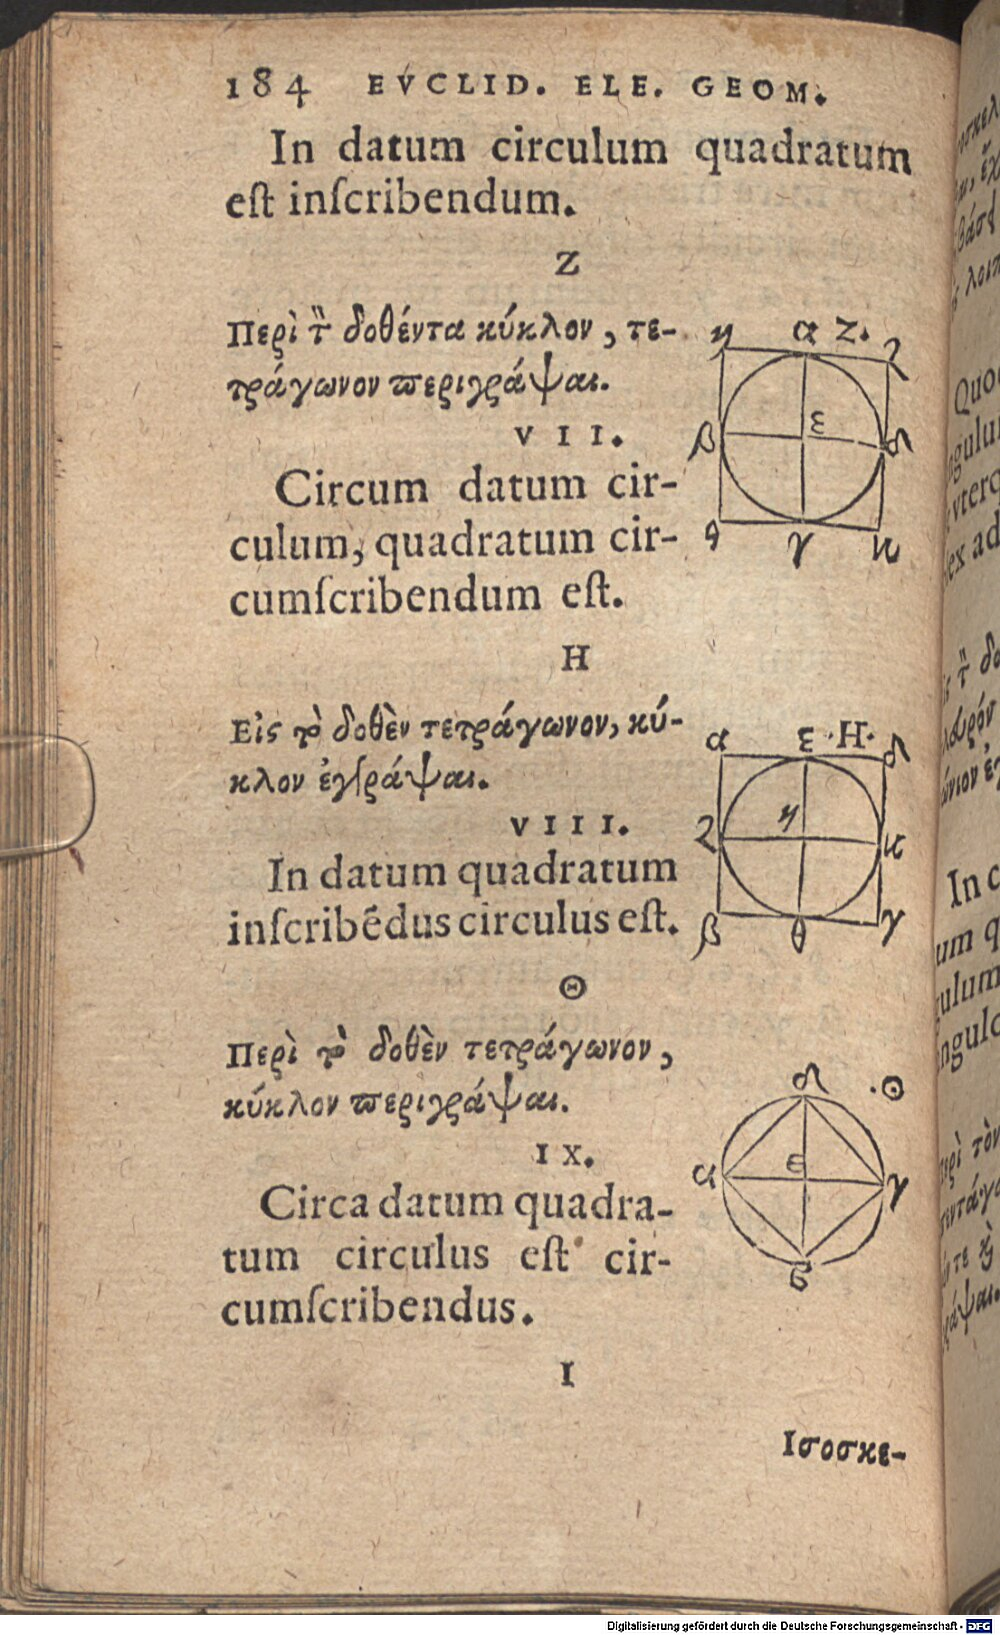 184 EVCLID. ELE. GEOM.
In datum circulum quadratum
est inſcribendum.
Z
Περὶ τ̀ δοθέντα κύκλον, τε-
τράγωνον περιγράψαι.
VII.
Circum datum cir-
culum, quadratum cir-
cumſcribendum eſt.
α Z.
η ζ
β ε δ
θ γ κ
H
Εἰς τὸ δοθὲν τετράγωνον, κύ-
κλον ἐγγράψαι.
VIII.
In datum quadratum
inſcribēdus circulus eſt.
α ε ·H· δ
η
ζ κ
β θ γ
Θ
Περὶ τὸ δοθὲν τετράγωνον,
κύκλον περιγράψαι.
IX.
Circa datum quadra-
tum circulus eſt cir-
cumſcribendus.
δ .Θ
α ε γ
β
I
Ισοσκε-
Digitalisierung gefördert durch die Deutsche Forschungsgemeinschaft - DFG